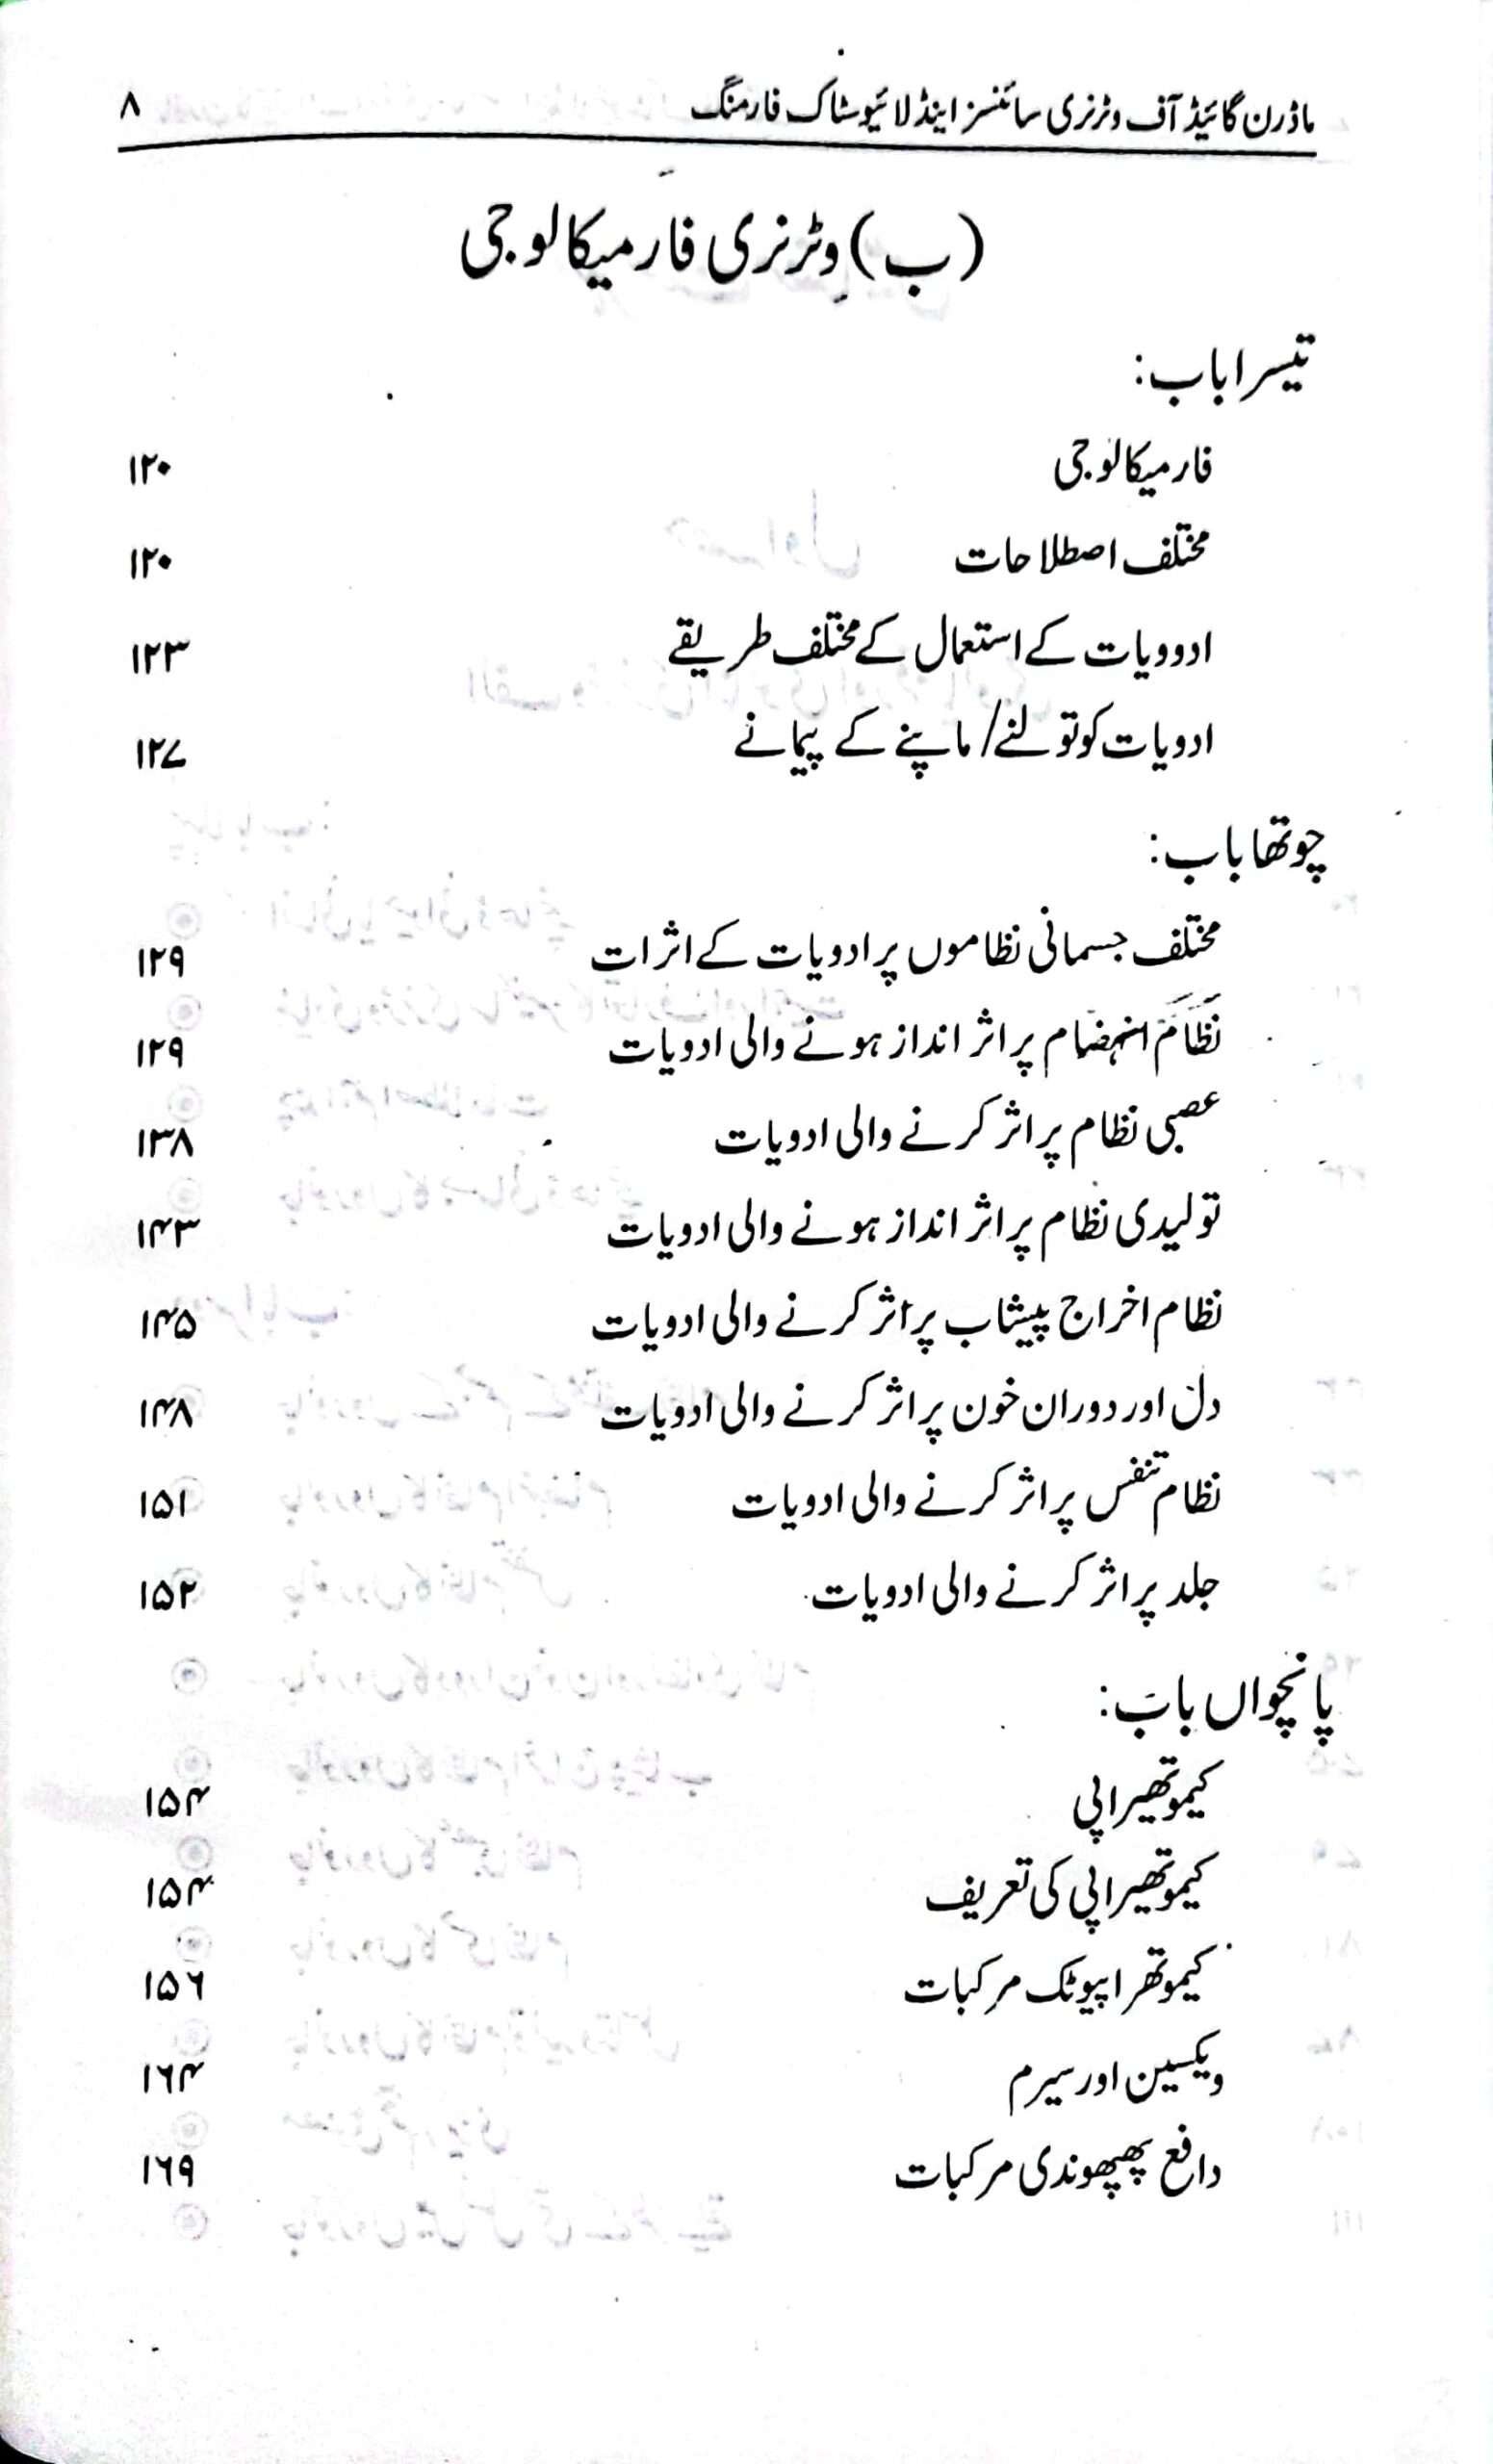 ماڈرن گائیڈ آف وٹرنری سائنسز اینڈ لائیوسٹاک فارمنگ ۸
(ب) وٹرنری فارمیکالوجی
تیسرا باب:
فارمیکالوجی ۱۲۰
مختلف اصطلاحات ۱۲۰
ادوویات کے استعمال کے مختلف طریقے ۱۲۳
ادویات کو تولنے/ماپنے کے پیمانے ۱۲۷
چوتھا باب:
مختلف جسمانی نظاموں پر ادویات کے اثرات ۱۲۹
نظام انہضام پر اثر انداز ہونے والی ادویات ۱۲۹
عصبی نظام پر اثر کرنے والی ادویات ۱۳۸
تولیدی نظام پر اثر انداز ہونے والی ادویات ۱۴۳
نظام اخراج پیشاب پر اثر کرنے والی ادویات ۱۴۵
دل اور دوران خون پر اثر کرنے والی ادویات ۱۴۸
نظام تنفس پر اثر کرنے والی ادویات ۱۵۱
جلد پر اثر کرنے والی ادویات ۱۵۲
پانچواں باب:
کیموتھیراپی ۱۵۴
کیموتھیراپی کی تعریف ۱۵۴
کیموتھراپیوٹک مرکبات ۱۵۶
ویکسین اور سیرم ۱۶۴
دافع پھپھوندی مرکبات ۱۶۹